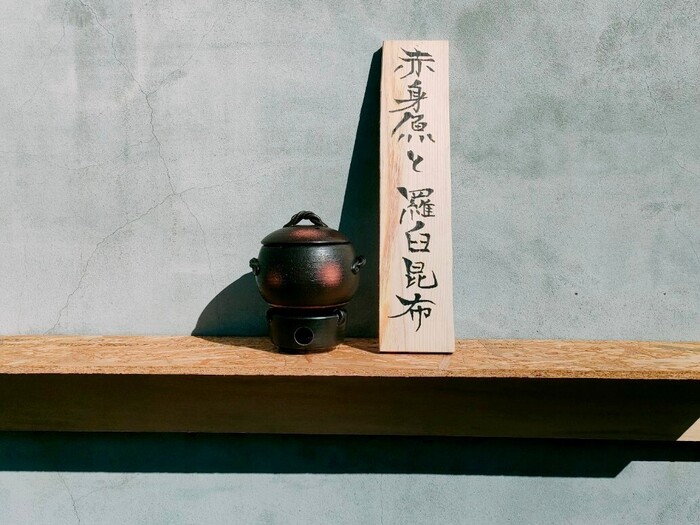 赤身魚と羅臼昆布